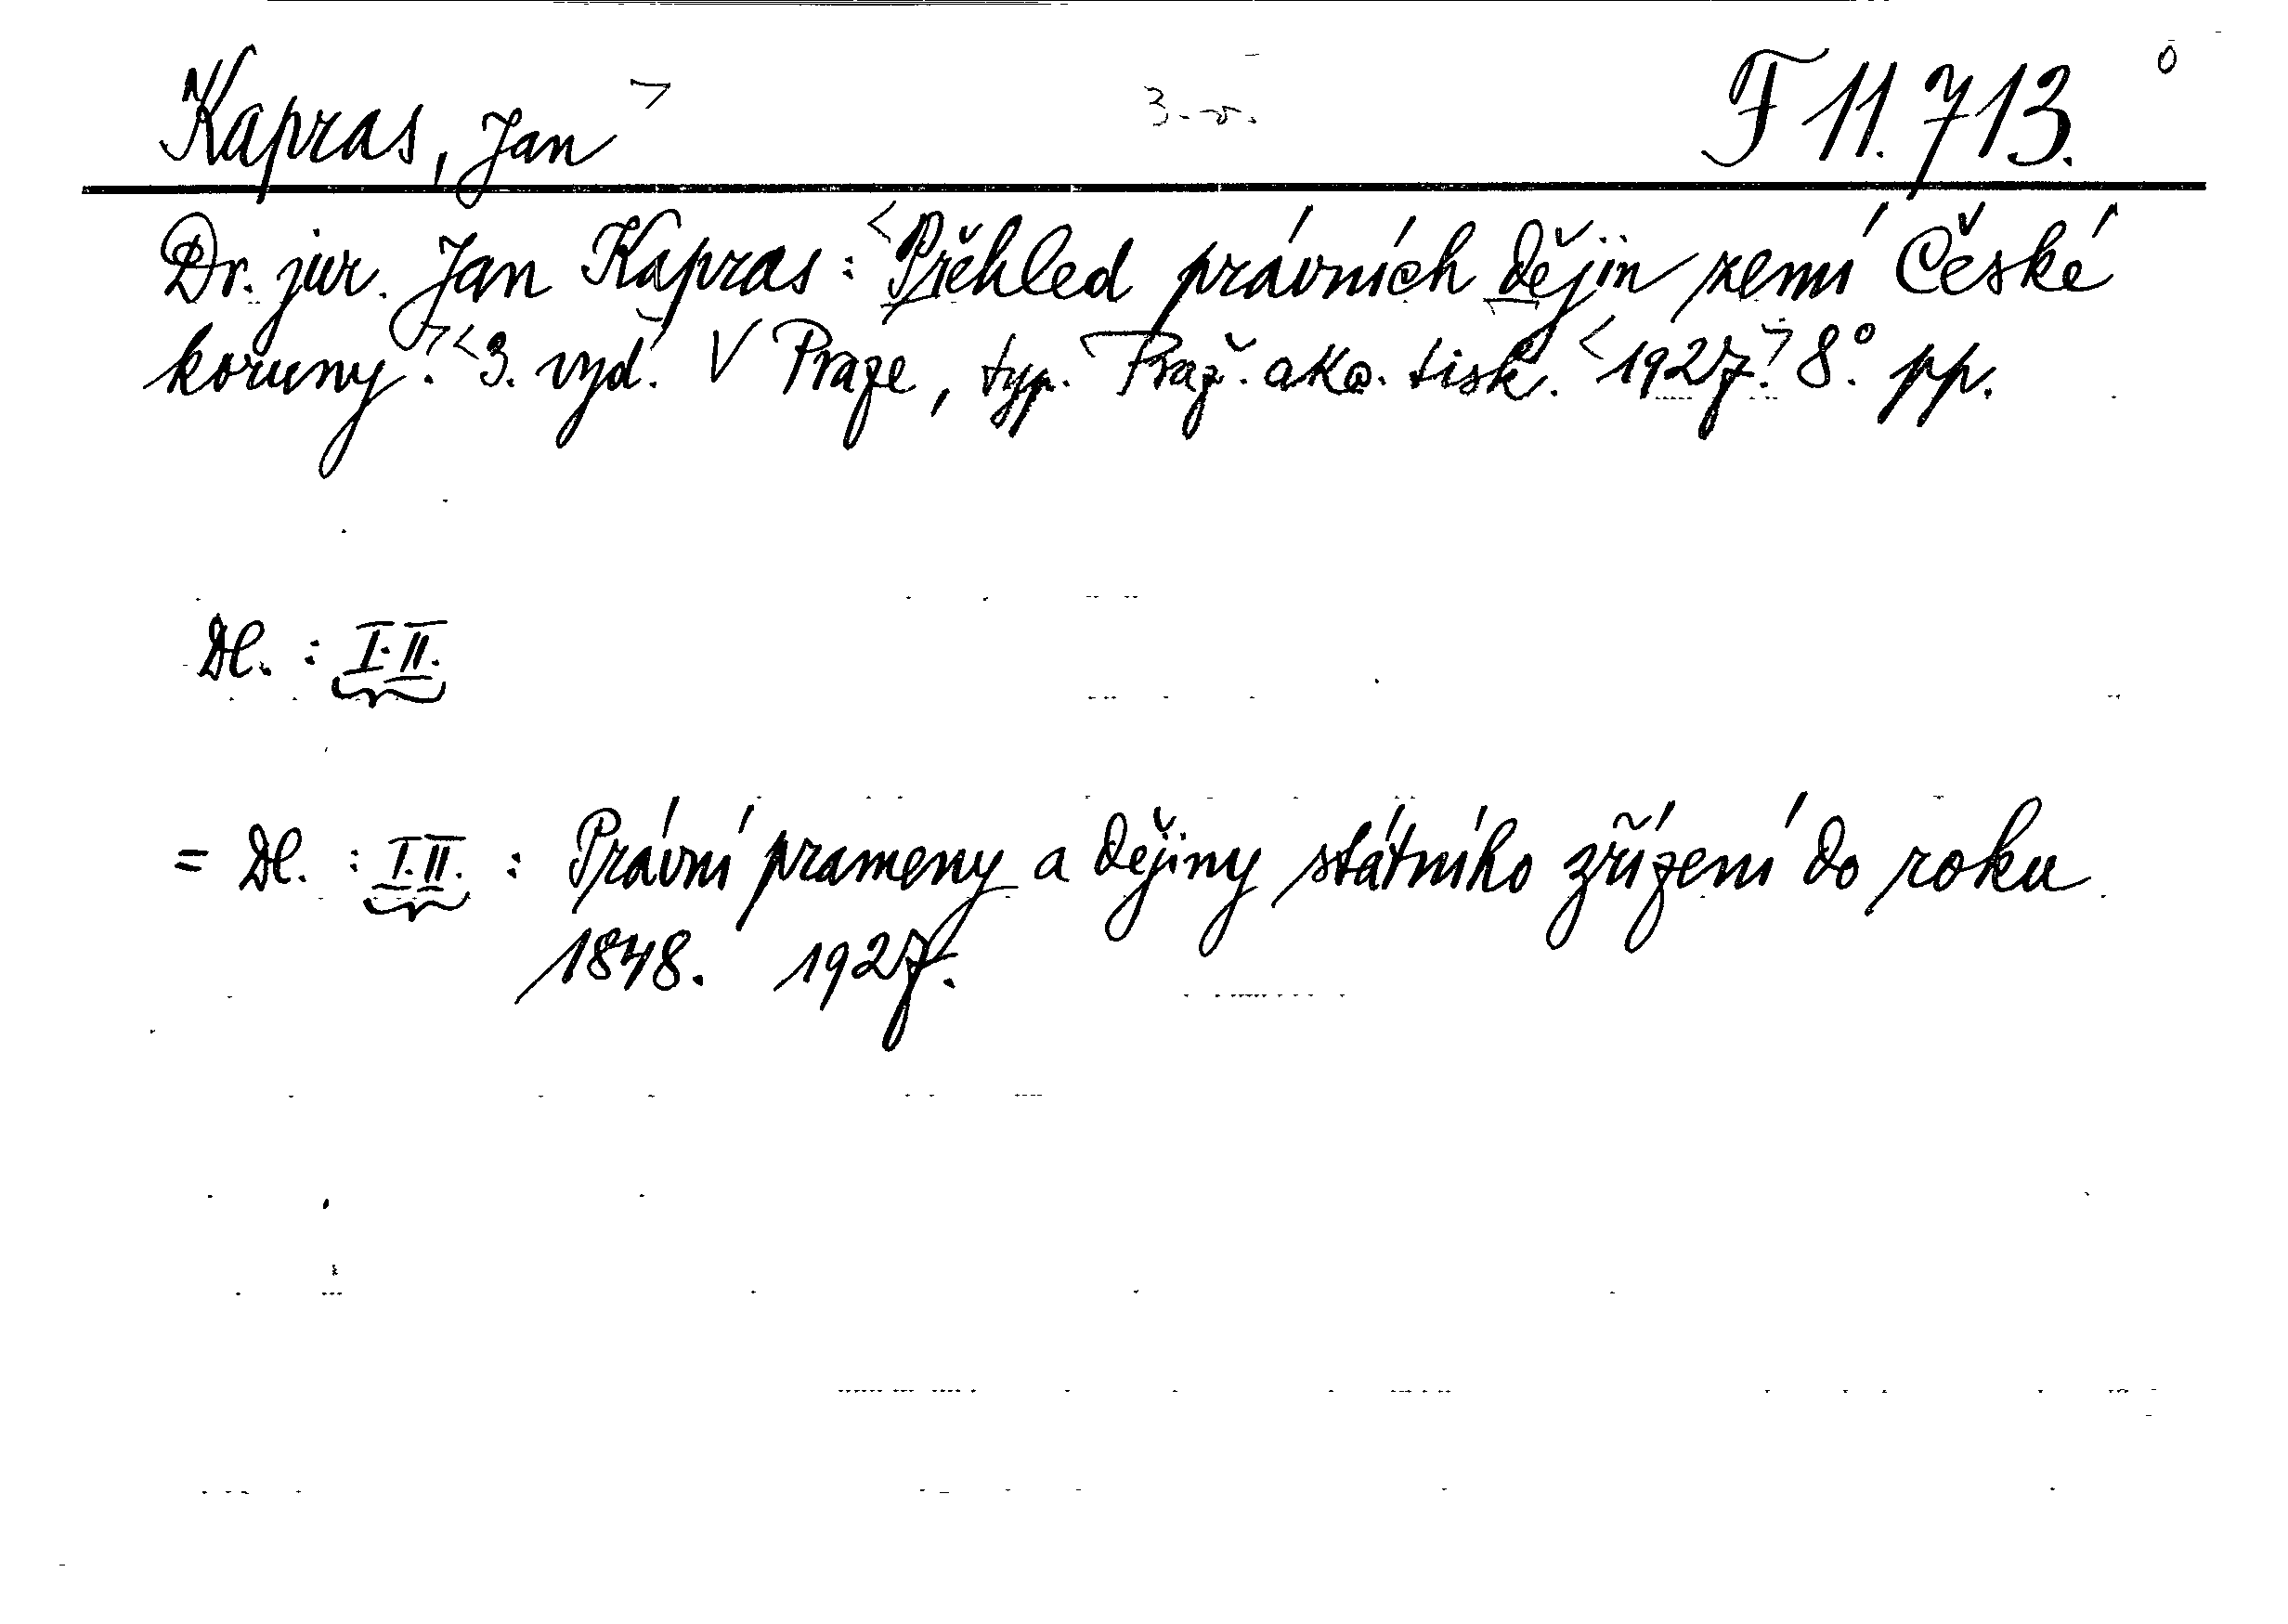 Kapras, Jan 3. v. F 11.713.
Dr. jur. Jan Kapras: Přehled právních dějin zemí České
koruny. 3. vyd. V Praze, typ. Praž. aka. tisk. 1927. 8° pp.
Dl. : I.II.
= Dl. : I.II. : Právní prameny a dějiny státního zřízení do roku
1848. 1927.